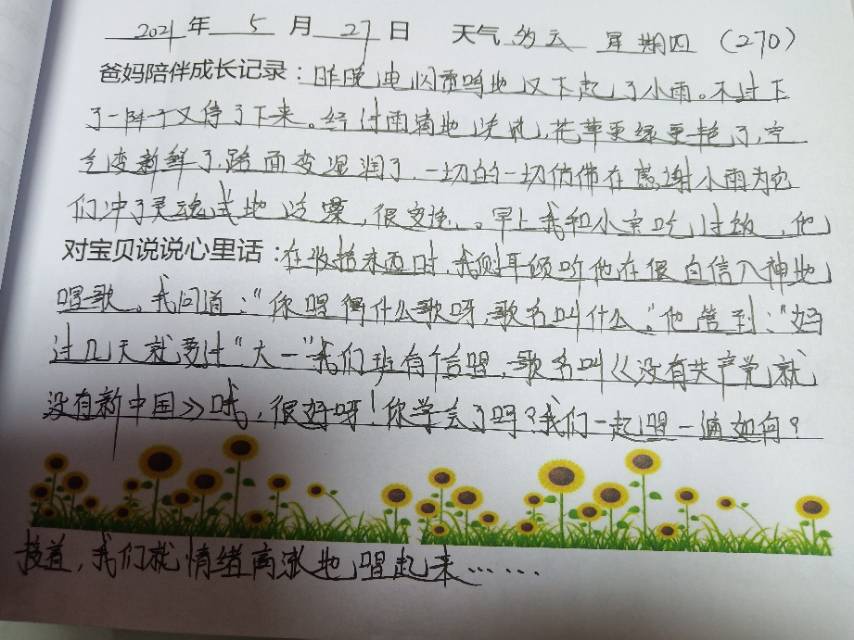 2021年 5 月 27 日 天气 多云 星期四 (270)
爸妈陪伴成长记录：昨晚电闪雷鸣地又下起了小雨。不过下
了一阵子又停了下来。经过雨滴地洗礼,花草更绿更艳了,空
气变新鲜了,路面变湿润了,一切的一切仿佛在感谢小雨为它
们冲了灵魂式地洗澡,很爽快。早上我和小宝吃过饭,他
对宝贝说说心里话：在收拾东西时,我侧耳倾听他在很自信入神地
唱歌。我问道："你唱得什么歌呀,歌名叫什么"他答到："妈
过几天就要过"六一"我们班有合唱,歌名叫《没有共产党就
没有新中国》哦,很好呀!你学会了吗?我们一起唱一遍如何?
接着,我们就情绪高涨地唱起来……